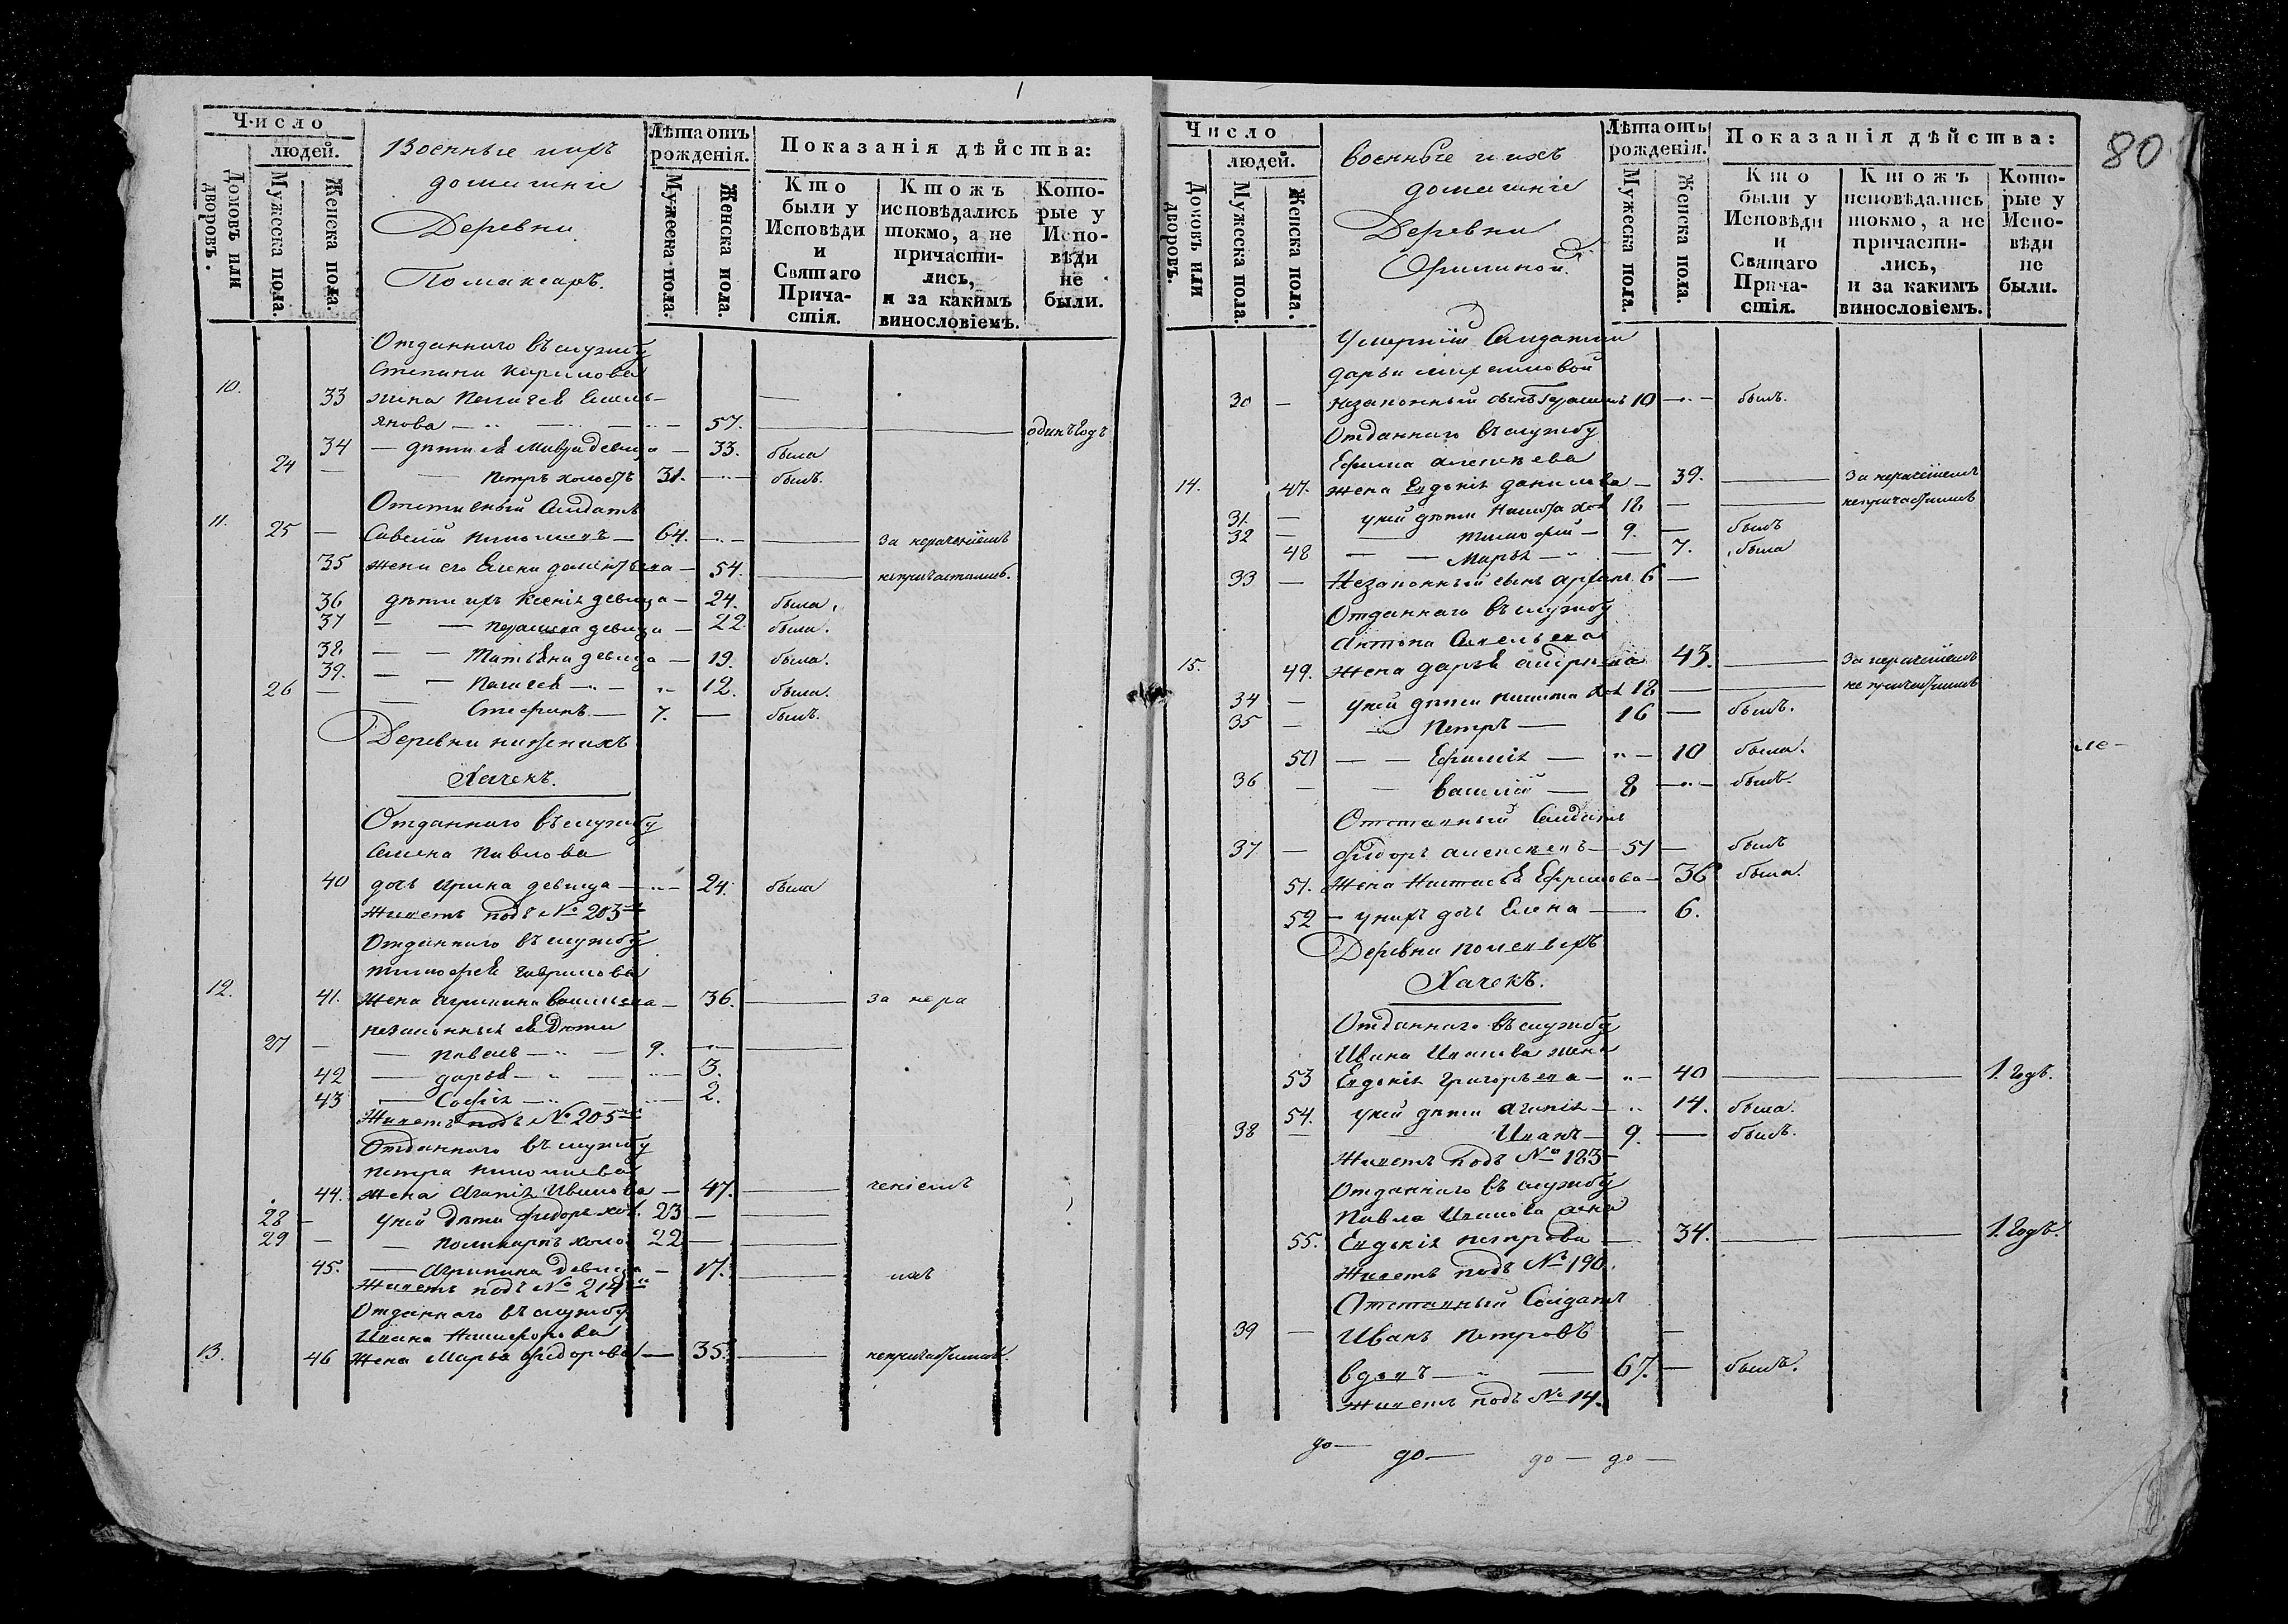 Число
людей.
Домовъ или дворовъ.
Мужеска пола.
Женска пола.
Военные ихъ
домашніе
Деревни
Помансаръ.
Лѣта отъ рожденія.
Мужеска пола.
Женска пола.
Показанія дѣйства:
Кто были у Исповѣди и Святаго Прича- стія.
Ктожъ исповѣдались токмо, а не причасти- лись, и за какимъ винословіемъ.
Кото- рые у Испо- вѣди не были.
Отданнаго въ службу
Степана Кирилова
10. 33 жена Пелагея Емель-
янова — 57. — — одинъ годъ
34 — дѣти ея Мавра девица — 33. была
24 — Петръ холостъ 31. — былъ.
Отставный Солдатъ
11. 25 — Савелій — 64. — За нерачениемъ
35 жена его Елена — 54. — непричастились.
36 дѣти ихъ Ксенія девица — 24. была.
37 — девица — 22 была.
38. — Татьяна девица — 19. была.
39. — Пелагея — 12. была.
26 — Стефанъ — 7. — былъ.
Деревни нижнихъ
Хачекъ.
Отданнаго въ службу
Семена Павлова
40 дочь Ирина девица — 24. была
Живетъ подъ № 203
Отданнаго въ службу
Тимофея Гаврилова
12. 41. Жена Агрипина Васильева — 36. — за нера
незаконныя ея Дѣти
27 — Павелъ — 9. —
42 — Дарья — 3.
43 — Софія — 2.
Живетъ подъ № 205
Отданнаго въ службу
Петра Николаева
44. Жена Агапія Иванова — 47. — ченіемъ
28 — у ней Дѣти Фидоръ хол. 23 —
29 — Поликарпъ холо 22 —
45. — Агрипина Девица — 17. —
Живетъ подъ № 214
Отданнаго въ службу
Ивана Никифорова
13. 46 Жена Марья Фидорова — 35. — непричастились.
80
Число
людей.
Домовъ или дворовъ.
Мужеска пола.
Женска пола.
военные и ихъ
домашніе
Деревни
Лѣта отъ рожденія.
Мужеска пола.
Женска пола.
Показанія дѣйства:
Кто были у Исповѣди и Святаго Прича- стія.
Ктожъ исповѣдались токмо, а не причасти- лись, и за какимъ винословіемъ.
Кото- рые у Испо- вѣди не были.
Умершій Солдатки
Дарьи
30 — незаконный сынъ Герасимъ 10 — былъ.
Отданнаго въ службу
Ефима Алексѣева
14. 47. Жена Евдокія Данилова — 39. — За нерачениемъ
31. — у ней дѣти Никита хол 18 — — непричастились
32 — Тимофей — 9. — былъ
48 — Марья — 7. была
33 — Незаконный сынъ 6 —
Отданнаго въ службу
Антона Савельева
15. 49. Жена Дарья — 43. — За нерачениемъ
34 — у ней дѣти Никита хол 18 — — не причастились
35 — Петръ — 16 — былъ.
50 — Ефимія — 10 была.
36 — Василій — 8 — былъ.
Отставный Солдатъ
37 — Фидоръ Алексѣевъ — 51 — былъ
51. Жена Настасья Ефремова — 36 была.
52 — у нихъ дочь Елена — 6.
Деревни
Хачекъ.
Отданнаго въ службу
Ивана Иванова жена
53 Евдокія Григорьева — 40 — — 1. годъ.
54. у ней дѣти Агапія — 14. была.
38 — Иванъ — 9. — былъ.
Живетъ подъ № 183
Отданнаго въ службу
Павла Иванова жена
55. Евдокія Петрова — 34. — — 1. годъ.
Живетъ подъ № 190.
Отставный Солдатъ
39 — Иванъ Петровъ —
вдовъ — 67. — былъ.
Живетъ подъ № 14.
до — до — до — до —